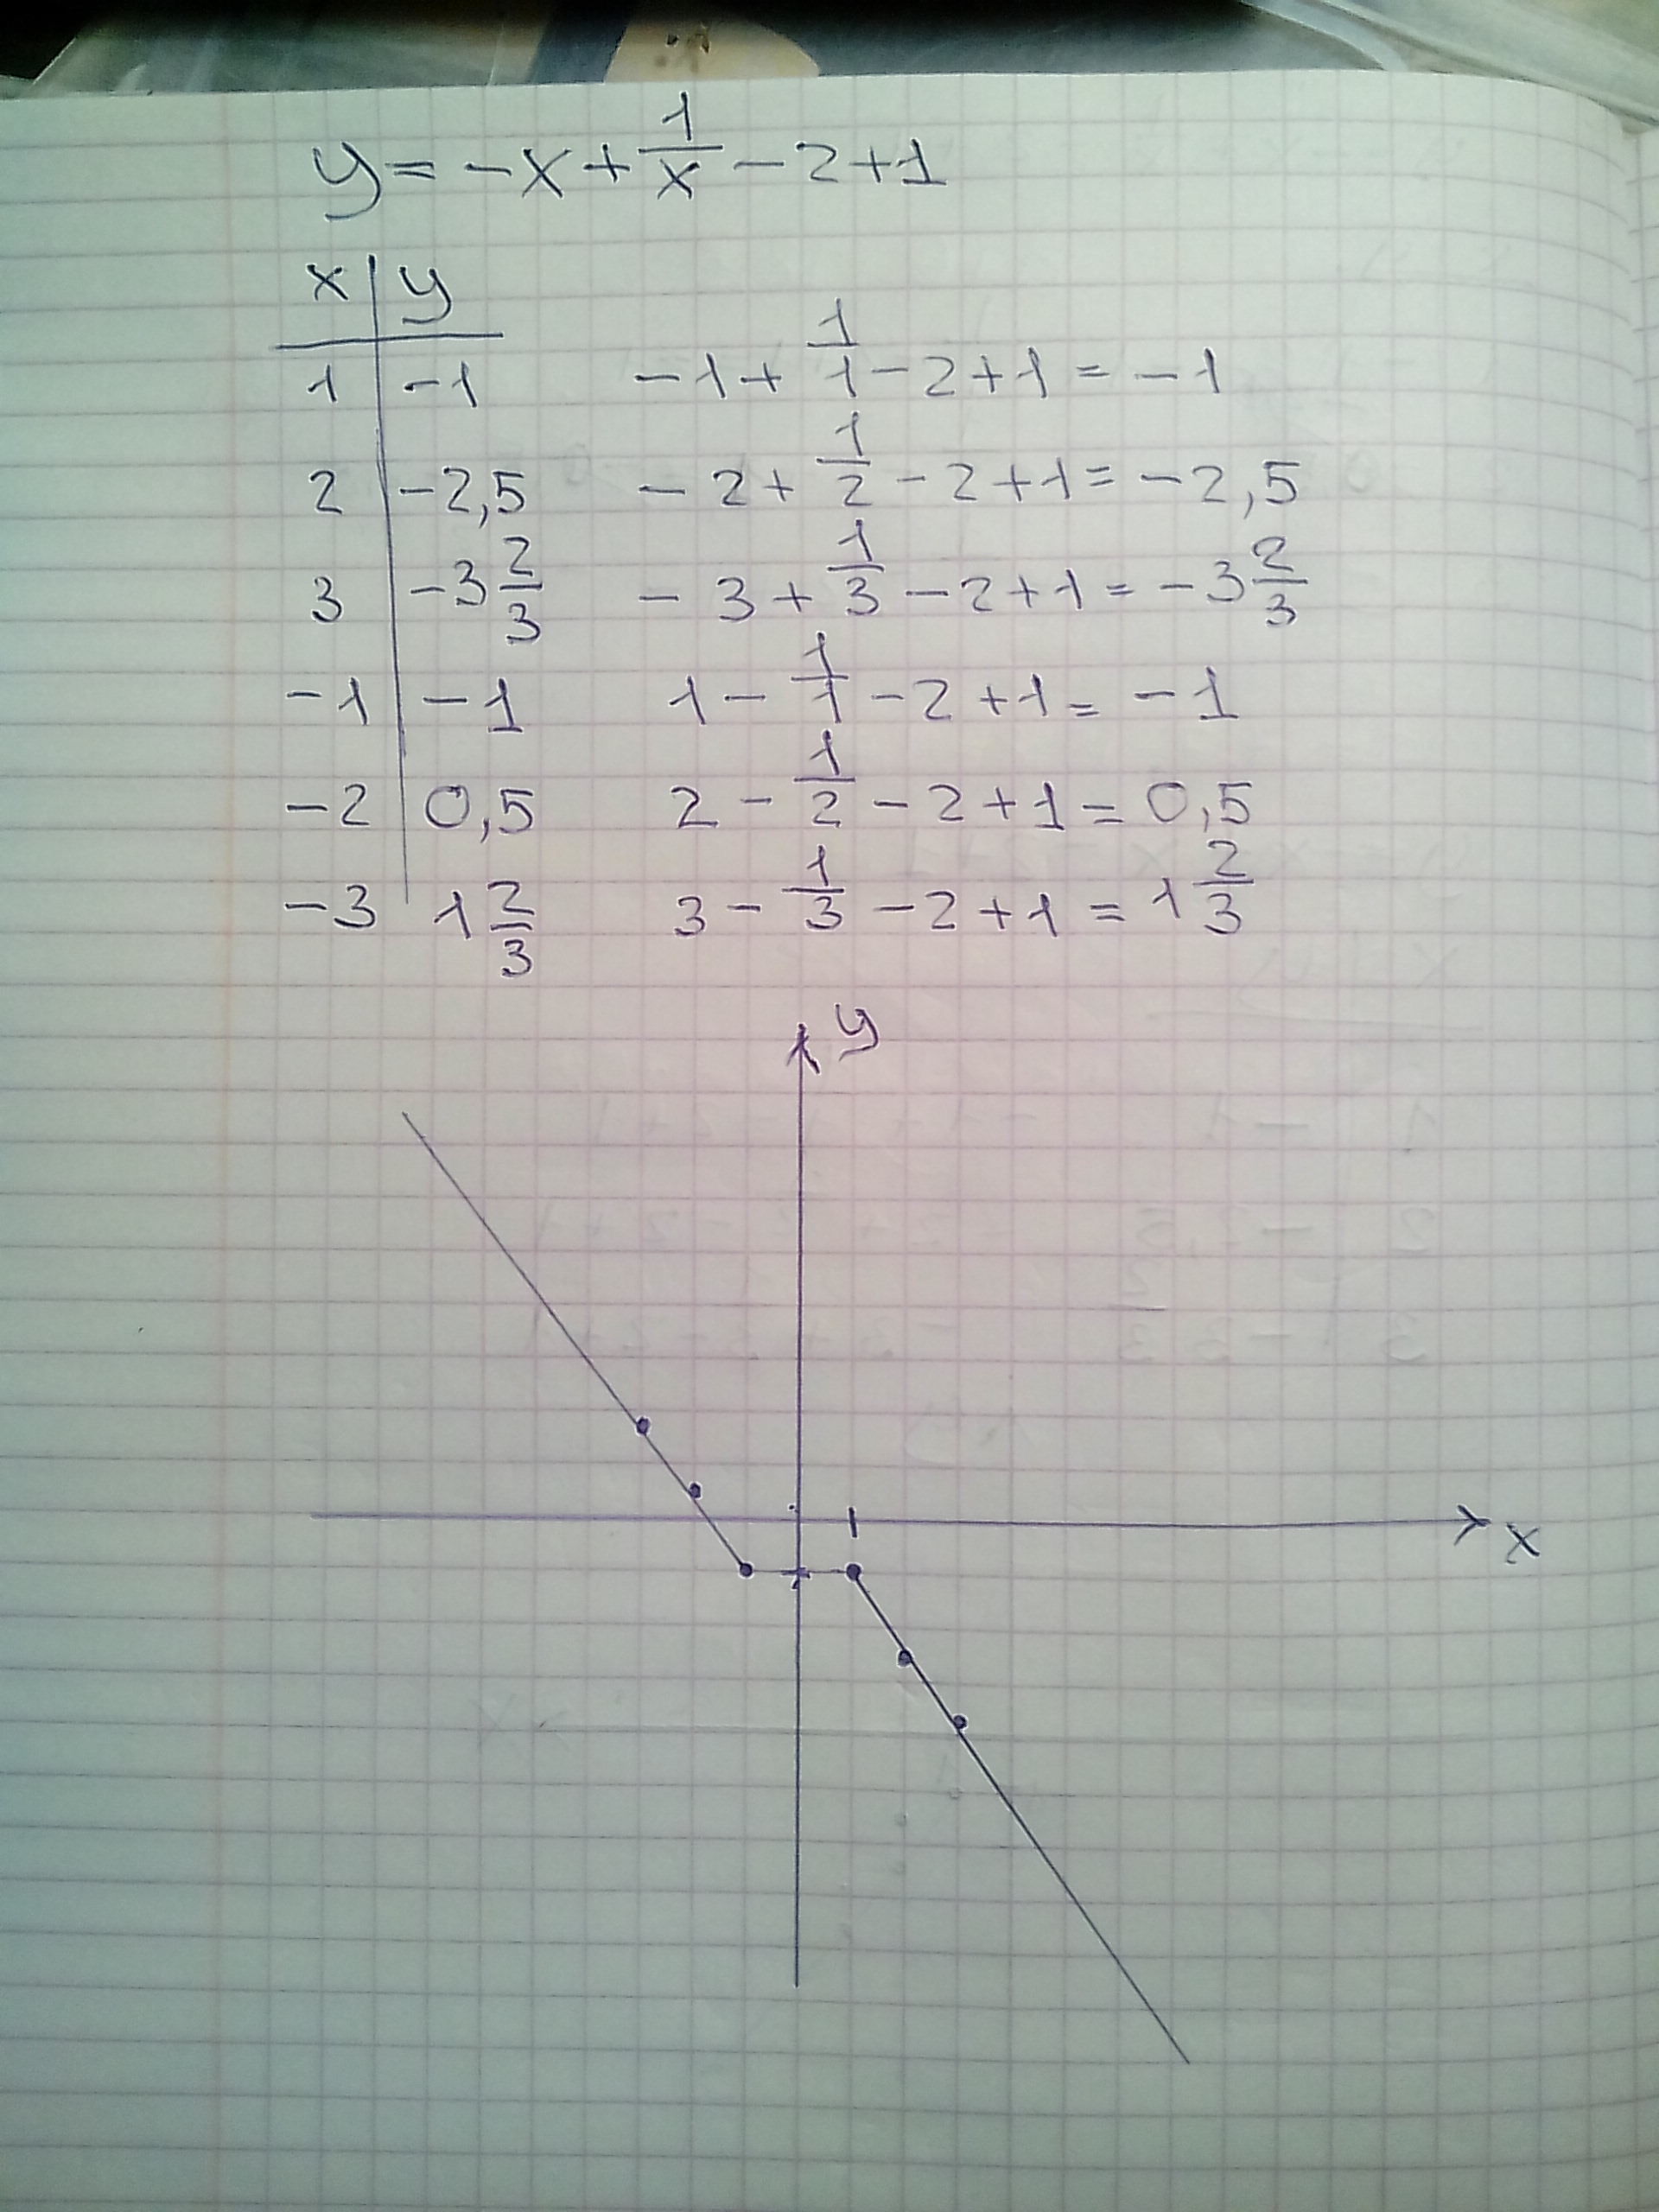 y = -x + 1/x - 2 + 1
x | y
1 | -1    -1 + 1/1 - 2 + 1 = -1
2 | -2,5    -2 + 1/2 - 2 + 1 = -2,5
3 | -3 2/3    -3 + 1/3 - 2 + 1 = -3 2/3
-1 | -1    1 - 1/1 - 2 + 1 = -1
-2 | 0,5    2 - 1/2 - 2 + 1 = 0,5
-3 | 1 2/3    3 - 1/3 - 2 + 1 = 1 2/3
y
x